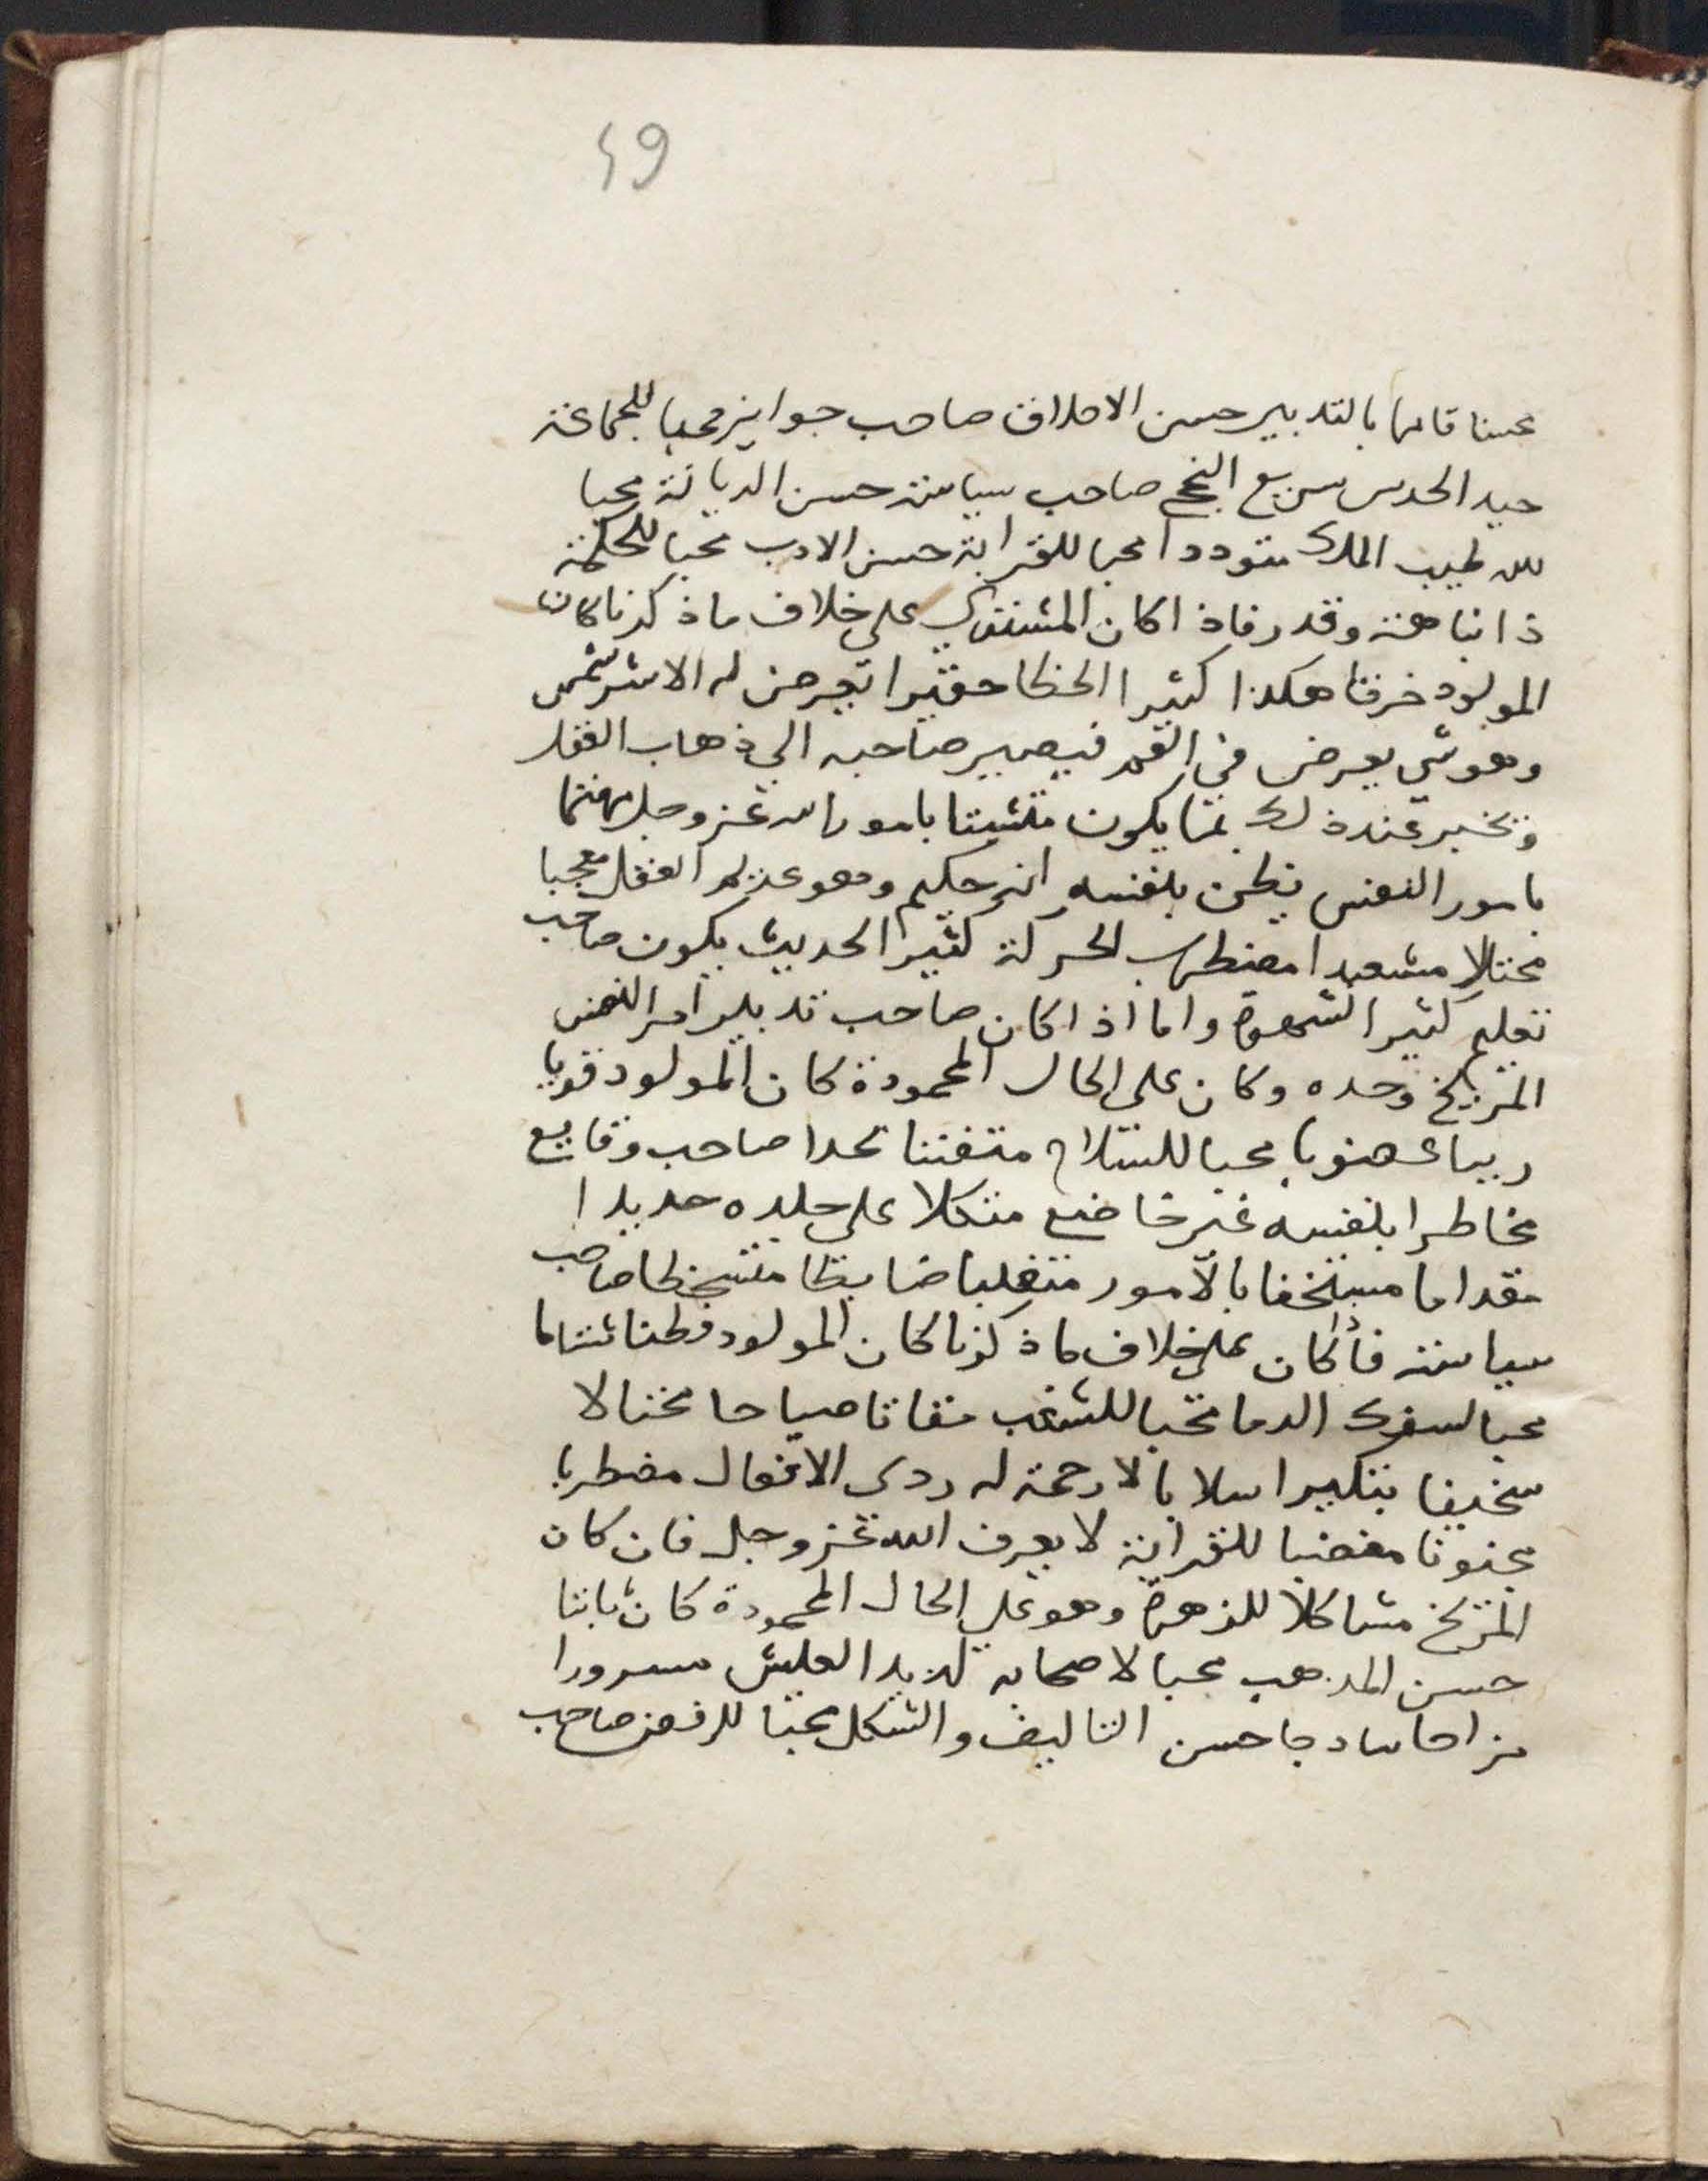 49
محسنا قايما بالتدبير حسن الاخلاق صاحب جوايز محبا للجماعة
جيد الحدس سريع النجح صاحب سياسة حسن الديانة محبا
متوددا محبا للقرابة حسن الادب محبا للحكمة
ذا نباهة وقدر فاذا كان المشتري على خلاف ما ذكرنا كان
المولود خرقا هكذا كثير الخطا حقيرا تعرض له
وهو شي يعرض في القمر فيصير صاحبه الي ذهاب العقل
عند ذلك بما يكون متشبثا بامور الله عز وجل مهتما
بامور النفس يظن بنفسه انه حكيم وهو عديم العقل معجبا
محتالا مشعبدا مضطرب الحركة كثير الحديث يكون صاحب
تعليم كثير الشهوة واما اذا كان صاحب تدبير امر النفس
المريخ وحده وكان على الحال المحمودة كان المولود قويا
رييسا غضوبا محبا للسلاح متفننا صاحب وقايع
مخاطرا بنفسه غير خاضع متكلا على جلده حديدا
مقداما مستخفا بالامور متغلبا ضابطا صاحب
سياسة فاذا كان على خلاف ما ذكرنا كان المولود شتاما
محبا لسفك الدما محبا للشغب صياحا مختالا
سخيفا سلابا لا رحمة له ردى الافعال مضطربا
مجنونا مغضبا للقرابة لا يعرف الله عز وجل فان كان
المريخ مشاكلا للزهرة وهو على الحال المحمودة كان ثابتا
حسن المذهب محبا لاصحابه لذيذ العيش مسرورا
مزاحا ساذجا حسن التاليف والشكل محبا للرقص صاحب